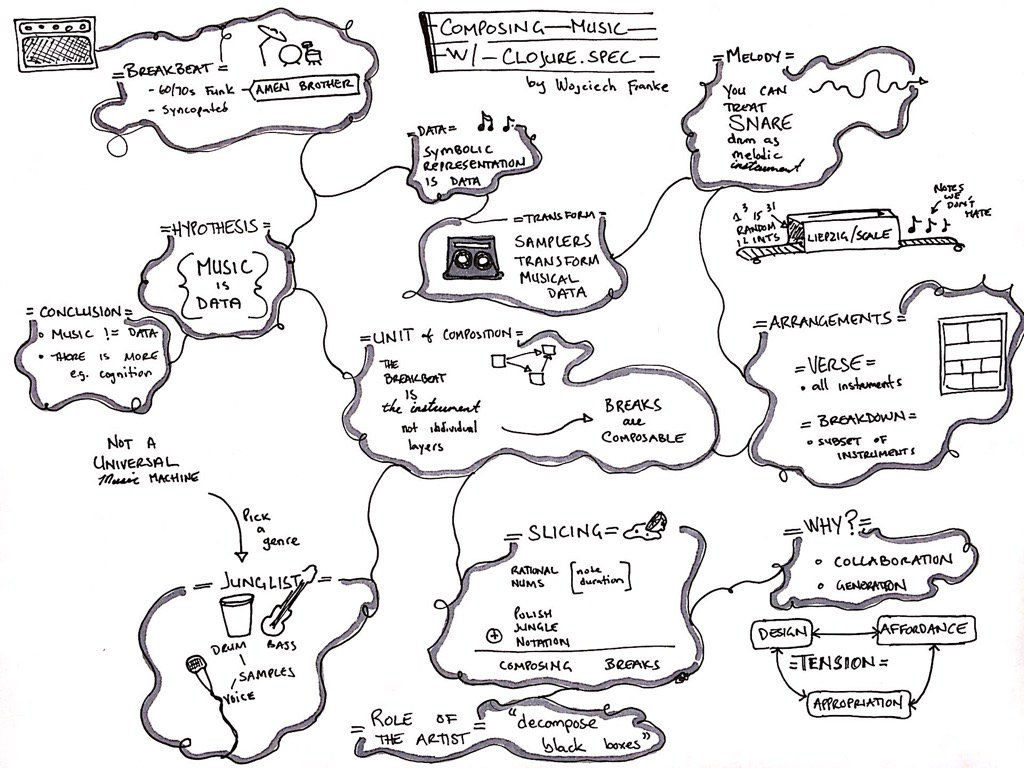 COMPOSING MUSIC
W/ CLOJURE.SPEC
by Wojciech Franke
= BREAKBEAT =
- 60/70s Funk
- Syncopated
AMEN BROTHER
= DATA =
SYMBOLIC
REPRESENTATION
IS DATA
= MELODY =
YOU CAN
TREAT
SNARE
drum as
melodic
instrument
= HYPOTHESIS =
{ MUSIC
IS
DATA }
= TRANSFORM =
SAMPLERS
TRANSFORM
MUSICAL
DATA
1 3 15 31
RANDOM
12 INTS
LIEPZIG/SCALE
NOTES
WE
DON'T
HATE
= CONCLUSION =
MUSIC != DATA
THERE IS MORE
e.g. cognition
= UNIT of COMPOSITION =
THE
BREAKBEAT
IS
the instrument
not individual
layers
BREAKS
are
COMPOSABLE
= ARRANGEMENTS =
= VERSE =
all instruments
= BREAKDOWN =
SUBSET OF
INSTRUMENTS
NOT A
UNIVERSAL
Music MACHINE
PICK
a
genre
= JUNGLIST =
DRUM
BASS
SAMPLES
VOICE
= SLICING =
RATIONAL
NUMS
[note
duration]
+ POLISH
JUNGLE
NOTATION
COMPOSING BREAKS
= WHY? =
COLLABORATION
GENERATION
DESIGN
AFFORDANCE
= TENSION =
APPROPRIATION
= ROLE OF
THE ARTIST =
"decompose
black boxes"